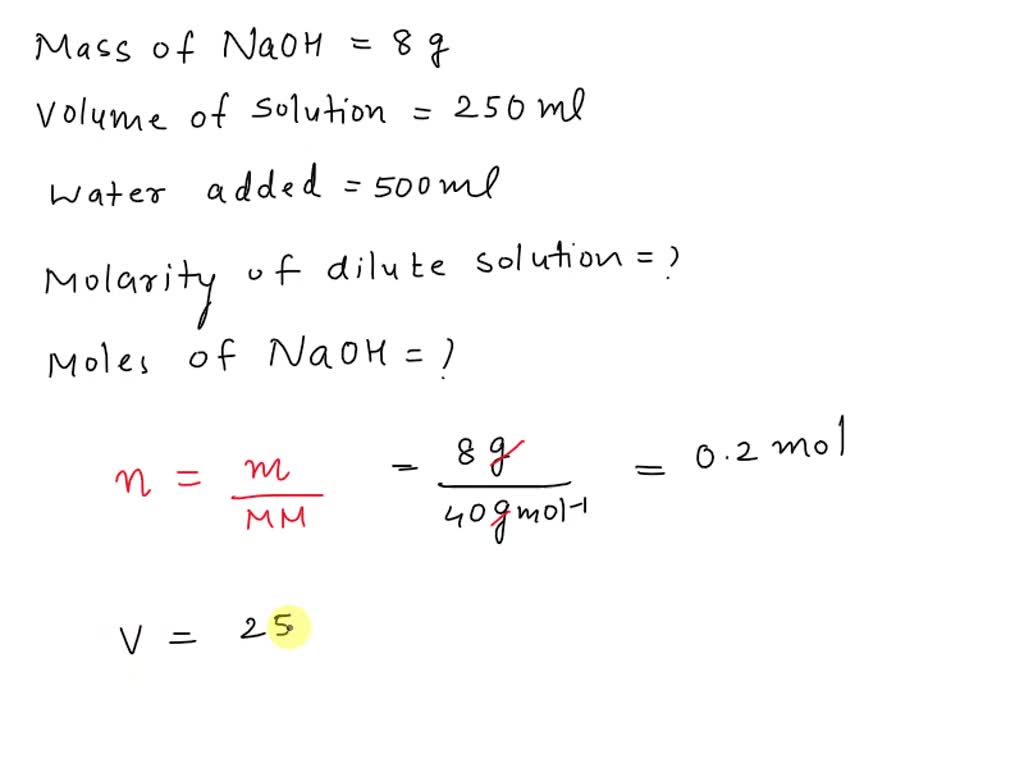 Mass of NaOH = 8 g
Volume of solution = 250 ml
Water added = 500 ml
Molarity of dilute solution = ?
Moles of NaOH = ?
n = m/MM = 8 g/40 g mol⁻¹ = 0.2 mol
V = 25